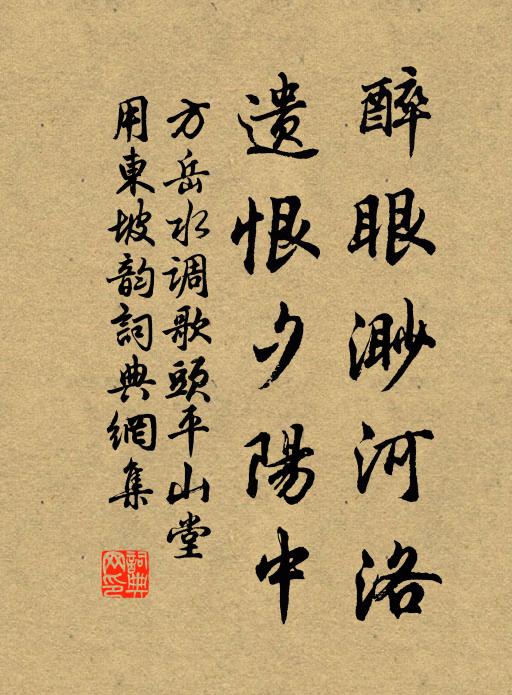 醉眼渺河洛
遗恨夕陽中
方岳水调歌頭平山堂
用東坡韵詞典網集
詞典网印